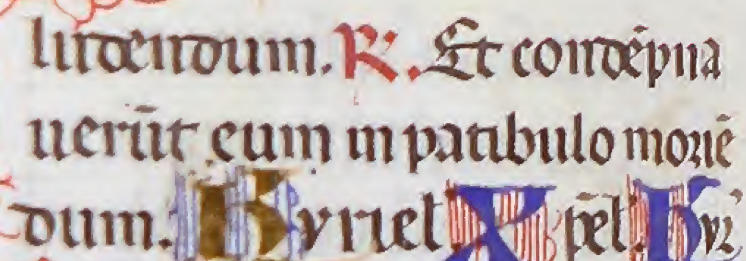 ludendum. R. Et condēpna
uerūt eum in patibulo moriē
dum. Kyriel. Xp̄el. Kyr